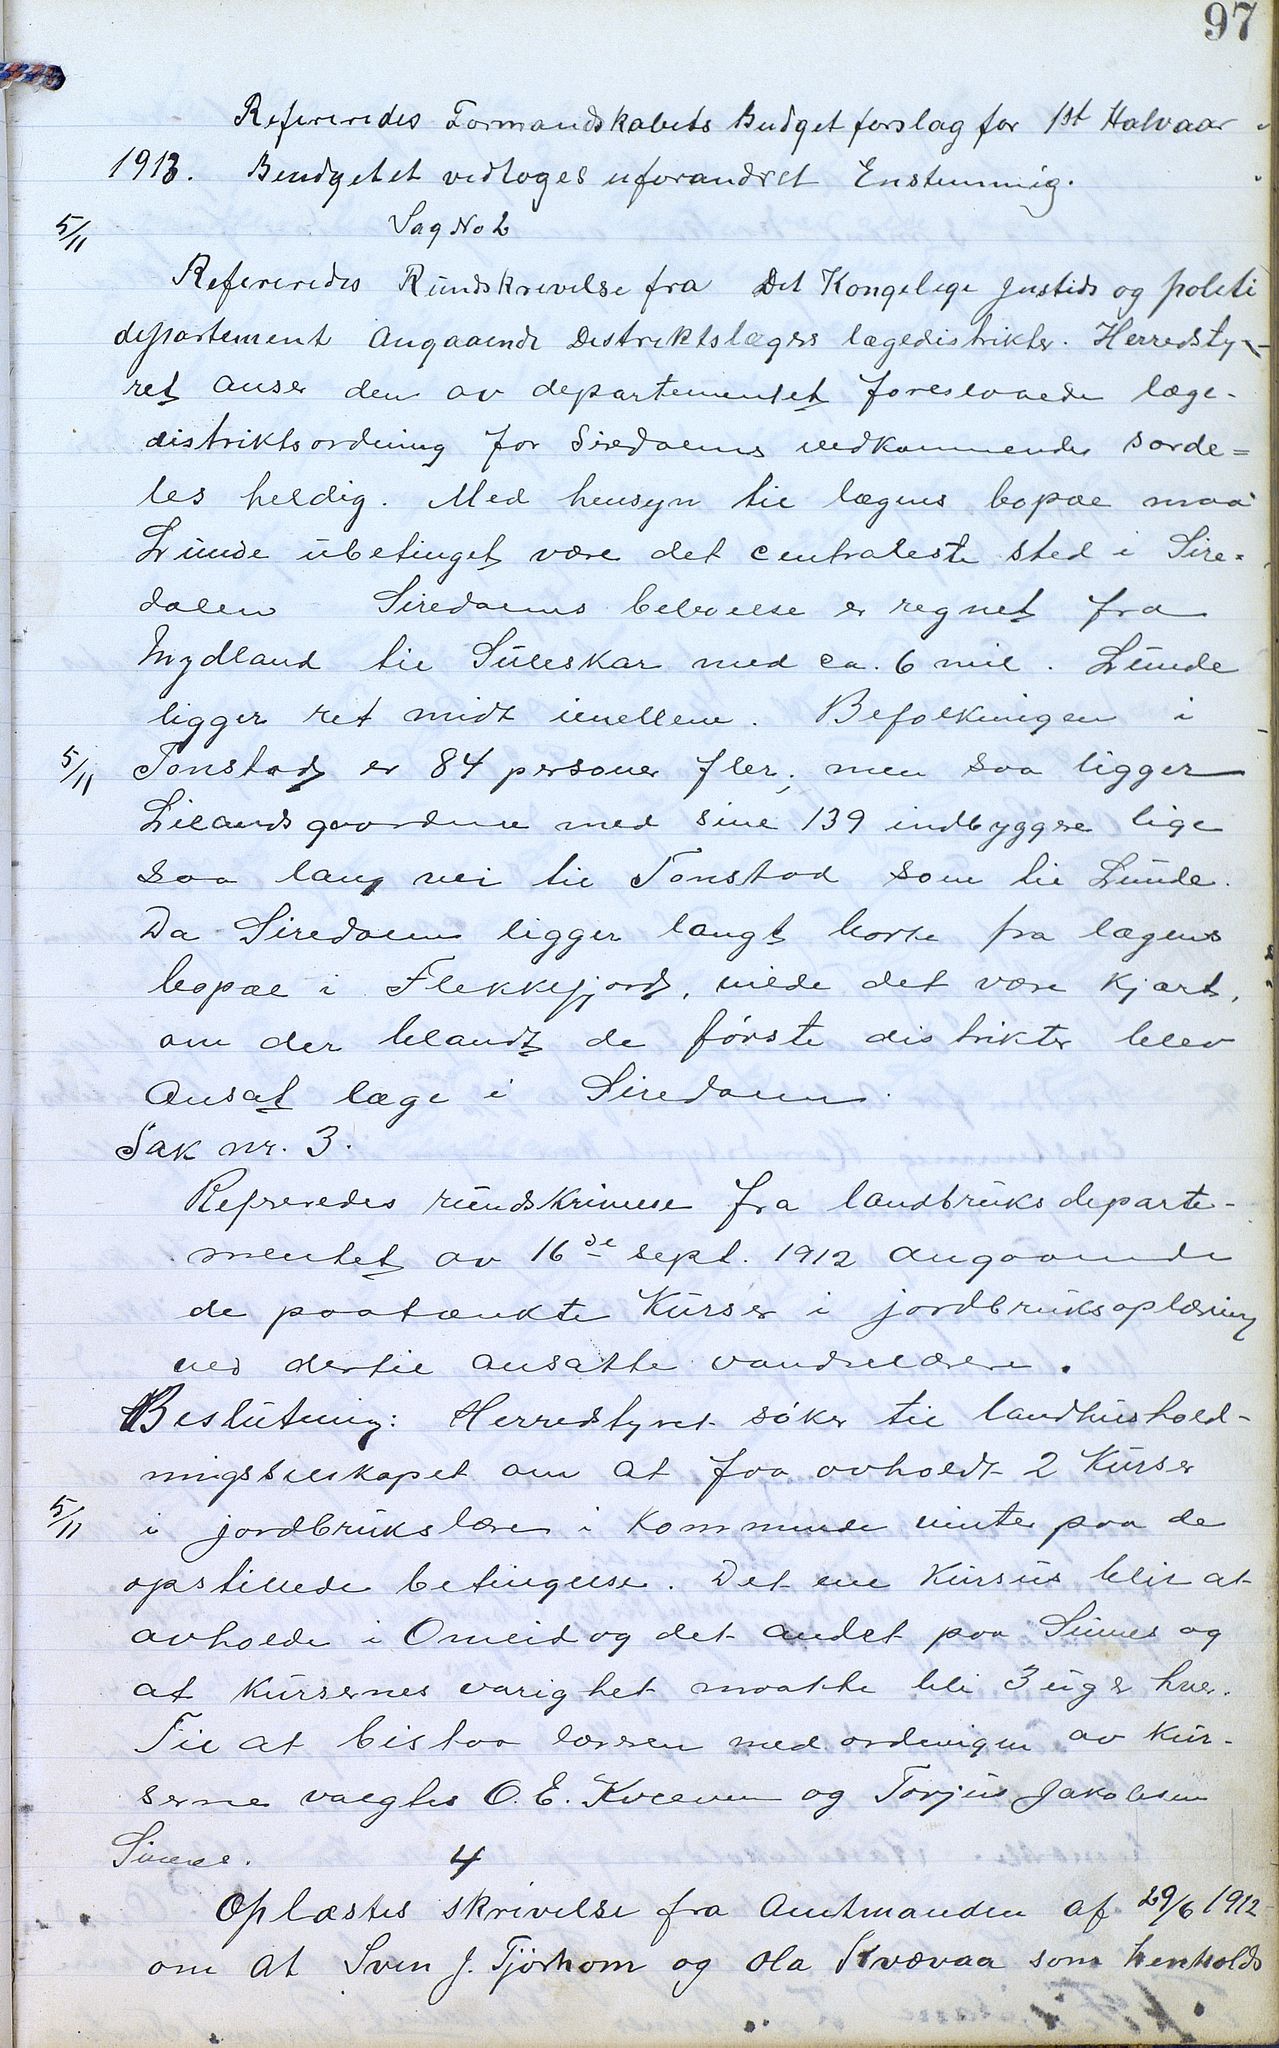 97
Refereredes Formandskabets Budgetforslag for 1st Halvaar
1913. Bendgetet vedtoges uforandret Enstemmig.
5/11 Sag No 2
Refereredes Rundskrivelse fra Det Kongelige Justids og politi
departement angaaende Distriktslægers lægedistrikter. Herredsty-
ret anser den av departementet foreslaaede læge-
distriktsordning for Siredalens vedkommende særde=
les heldig. Med hensyn til lægens bopæl maa
Lunde ubetinget være det centraleste sted i Sire=
dalen Siredalens bebyggelse er regnet fra
Mydland til Suleskar med ca. 6 mil. Lunde
ligger ret midt imellem. Befolkningen i
5/11 Tonstad er 84 personer fler; men saa ligger
Lilandsgaardene med sine 139 indbyggere lige
saa lang vei til Tonstad som til Lunde.
Da Siredalen ligger langt borte fra lægens
bopæl i Flekkefjord, vilde det være kjært,
om der blandt de første distrikter blev
Ansat læge i Siredalen.
Sak nr. 3.
Refereredes rundskrivelse fra landbruksdeparte-
mentet av 16de sept. 1912 angaaende
de paatænkte Kurser i jordbruksoplæring
ved dertil ansatte vandrelærere.
Beslutning: Herredstyret søker til landhushold-
ningsselskapet om at faa avholdt 2 Kurser
5/11 i jordbrukslære i kommende vinter paa de
opstillede betingelser. Det ene Kursus blir at
avholde i Omlid og det andet paa Sinnes og
at Kursernes varighet maatte bli 3 uger hver.
Til at bistaa læreren med ordningen av Kur-
serne valgtes O. E. Kvæven og Torjus Jakobsen
Sinnes. 4
Oplæstes skrivelse fra Amtmanden af 29/6 1912
om at Sven J. Tjørhom og Ola Kvævaa som henholds